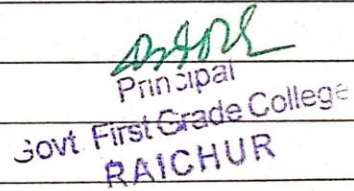 Principal
Govt First Grade College
RAICHUR